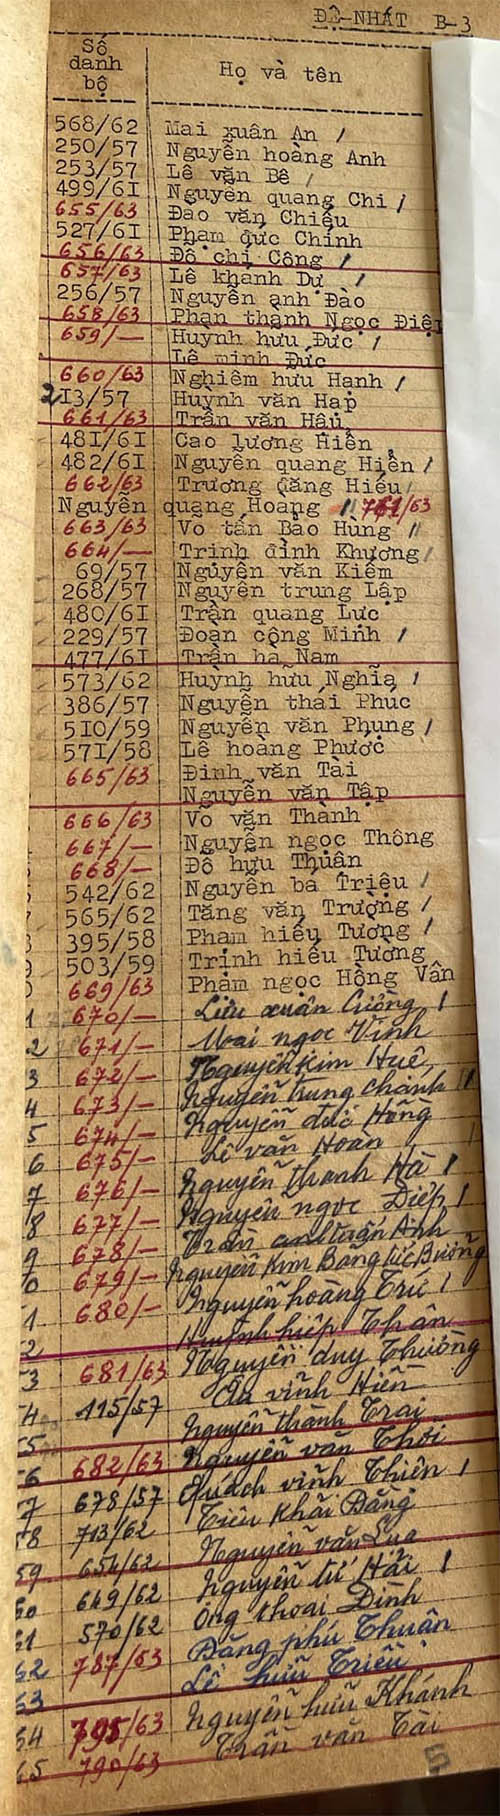 ĐỆ-NHẤT B-3
Số danh bộ Họ và tên
568/62 Mai xuân An /
250/57 Nguyễn hoàng Anh
253/57 Lê văn Bê /
499/61 Nguyễn quang Chi /
655/63 Đào văn Chiêu
527/61 Phạm đức Chính
656/63 Đỗ chí Công /
657/63 Lê khánh Dư /
256/57 Nguyễn anh Đào
658/63 Phan thành Ngọc Điệp
659/— Huỳnh hữu Đức /
Lê minh Đức
660/63 Nghiêm hữu Hạnh /
213/57 Huỳnh văn Hạp
661/63 Trần văn Hậu
481/61 Cao lương Hiền
482/61 Nguyễn quang Hiển /
662/63 Trương đăng Hiếu /
Nguyễn quang Hoàng // 761/63
663/63 Võ tấn Bảo Hùng //
664/— Trịnh đình Khương /
69/57 Nguyễn văn Kiểm
268/57 Nguyễn trung Lập
480/61 Trần quang Lực
229/57 Đoàn công Minh /
477/61 Trần hà Nam
573/62 Huỳnh hữu Nghĩa /
386/57 Nguyễn thái Phúc
510/59 Nguyễn văn Phụng /
571/58 Lê hoàng Phước
665/63 Đinh văn Tài
Nguyễn văn Tập
666/63 Võ văn Thành
667/— Nguyễn ngọc Thông
668/— Đỗ hữu Thuận
542/62 Nguyễn bá Triệu /
565/62 Tăng văn Trường /
395/58 Phạm hiếu Tương /
503/59 Trịnh hiếu Tường
669/63 Phạm ngọc Hồng Vân
1 670/— Lưu xuân Cường /
2 671/— Mai ngọc Vinh
3 672/— Nguyễn Kim Huê
4 673/— Nguyễn trung Chánh //
5 674/— Nguyễn đức Hồng
6 675/— Lê văn Hoan /
7 676/— Nguyễn thanh Hà /
8 677/— Nguyễn ngọc Diệp /
9 678/— Trần anh tuấn Anh
0 679/— Nguyễn Kim Bằng
1 680/— Nguyễn hoàng Trí /
2 Huỳnh hiệp Thân
3 681/63 Nguyễn duy Thường
54 115/57 Âu vĩnh Hiền
55 Nguyễn thành Trai
56 682/63 Nguyễn văn Thới
57 678/57 Quách vĩnh Thiên /
58 713/62 Tiêu Khải Đằng
59 654/62 Nguyễn văn Lụa
60 649/62 Nguyễn tử Hải /
61 570/62 Ông thoại Đình
62 787/63 Đặng phú Thuận
63 Lê hữu Triều
64 795/63 Nguyễn hữu Khánh
65 790/63 Trần văn Tài